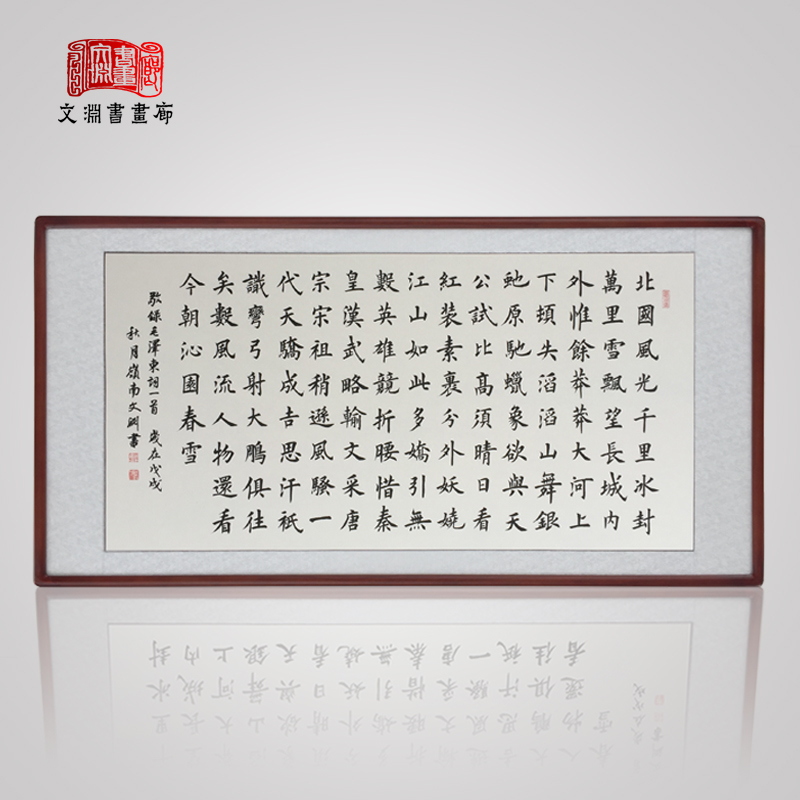 文淵書畫廊
北國風光千里冰封
萬里雪飄望長城内
外惟餘莽莽大河上
下頓失滔滔山舞銀
虵原馳蠟象欲與天
公試比髙須晴日看
紅装素裹分外妖嬈
江山如此多嬌引無
數英雄競折腰惜秦
皇漢武略輸文采唐
宗宋祖稍遜風騷一
代天驕成吉思汗衹
識彎弓射大鵰俱往
矣數風流人物還看
今朝沁園春雪
敬錄毛澤東詞一首 歲在戊戌
秋月嶺南文淵書